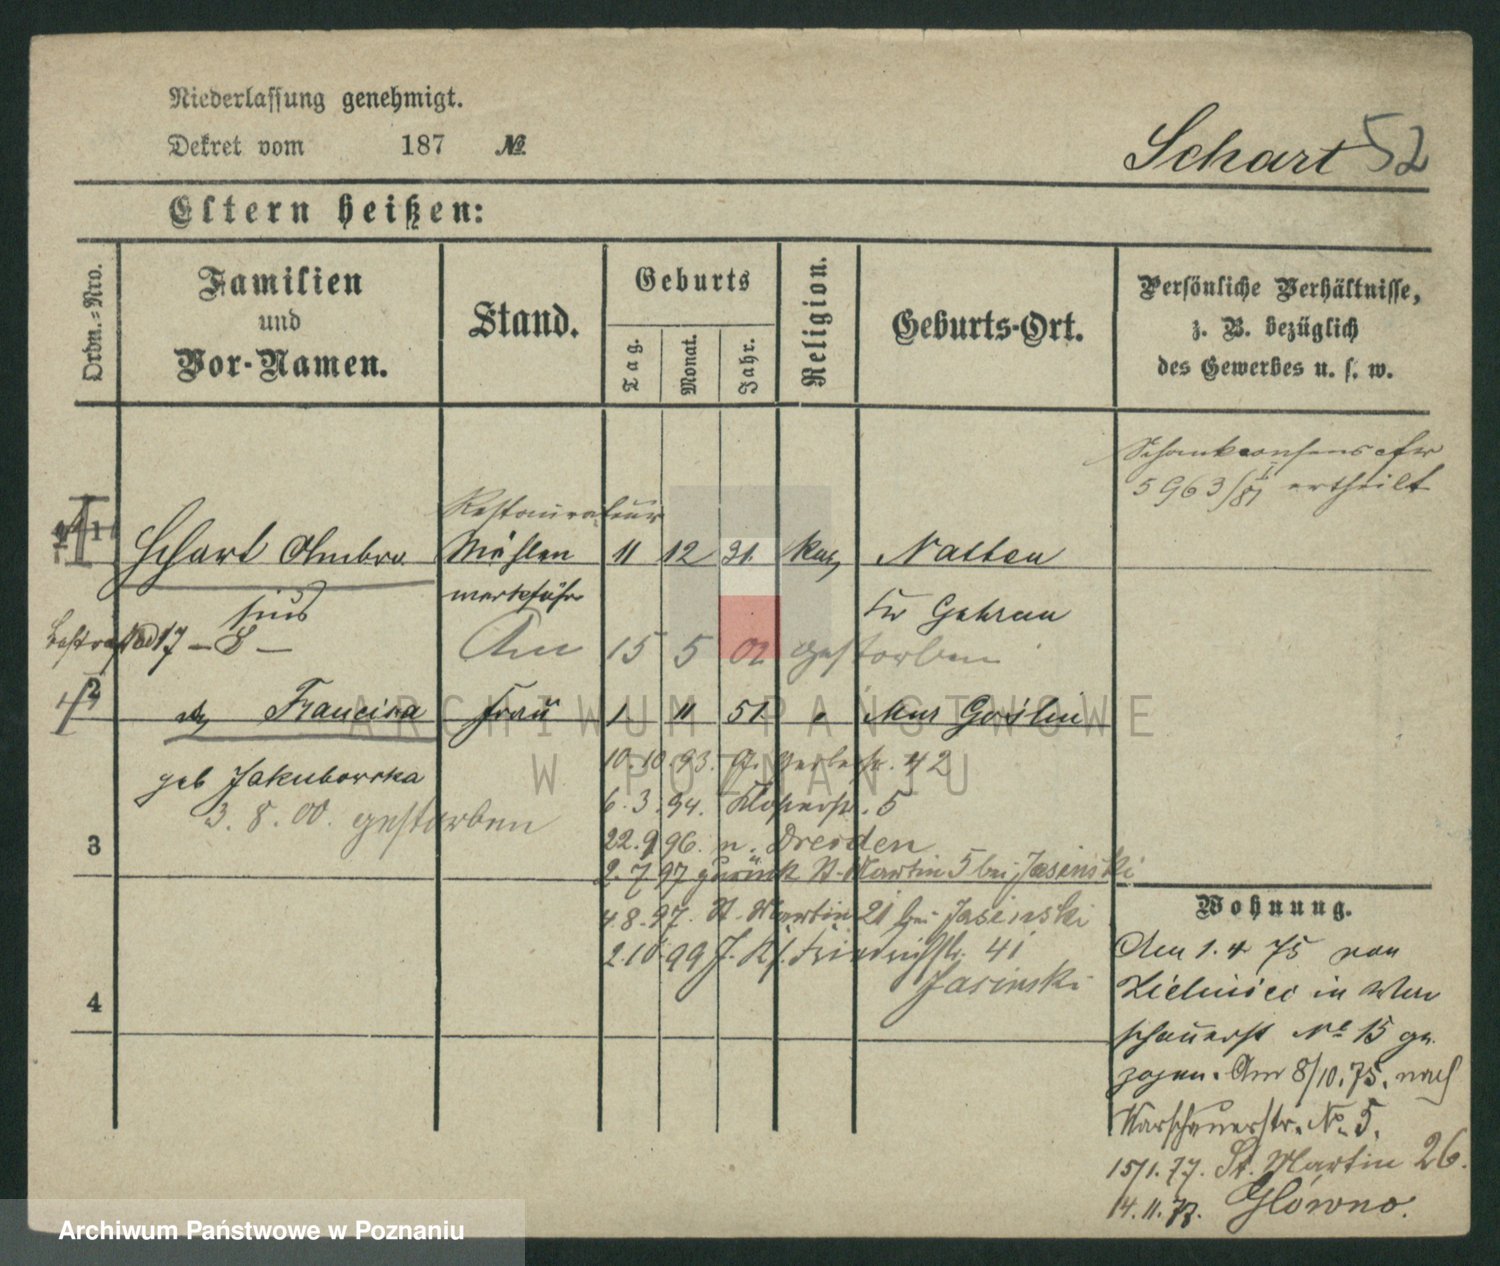 Niederlassung genehmigt.
Dekret vom 187 №
Schart 52
Eltern heißen:
Ordn.=Nro.
Familien
und
Vor-Namen.
Stand.
Geburts
Tag.
Monat.
Jahr.
Religion.
Geburts-Ort.
Persönliche Verhältnisse,
z. B. bezüglich
des Gewerbes u. s. w.
5963/81 ertheilt
Restaurateur
Schart Ambro
Mühlen
11 12 31. kath
sius
werkführer
Kr Guhrau
17 – 8 –
Am 15 5 02 gestorben
2
Francisca Frau 1 11 51 Mur Goslin
geb Jakubowska
3. 8. 00. gestorben
10.10.93. 42
6.3.94. 5
22.9 96. n. Dresden
2.7 97 zurück St. Martin 5 bei Jasinski
4.8.97. St. Martin 21 bei Jasinski
2.10 99 Friedrichstr. 41
Jasinski
3
4
Wohnung.
Am 1.4 75 von
Zieliniec in War
schauerst No 15 ge
zogen. Am 8/10.75. nach
Warschauerstr. No. 5.
15/1.77. St. Martin 26.
14.11.77. Glówno.
ARCHIWUM PAŃSTWOWE
W POZNANIU
Archiwum Państwowe w Poznaniu